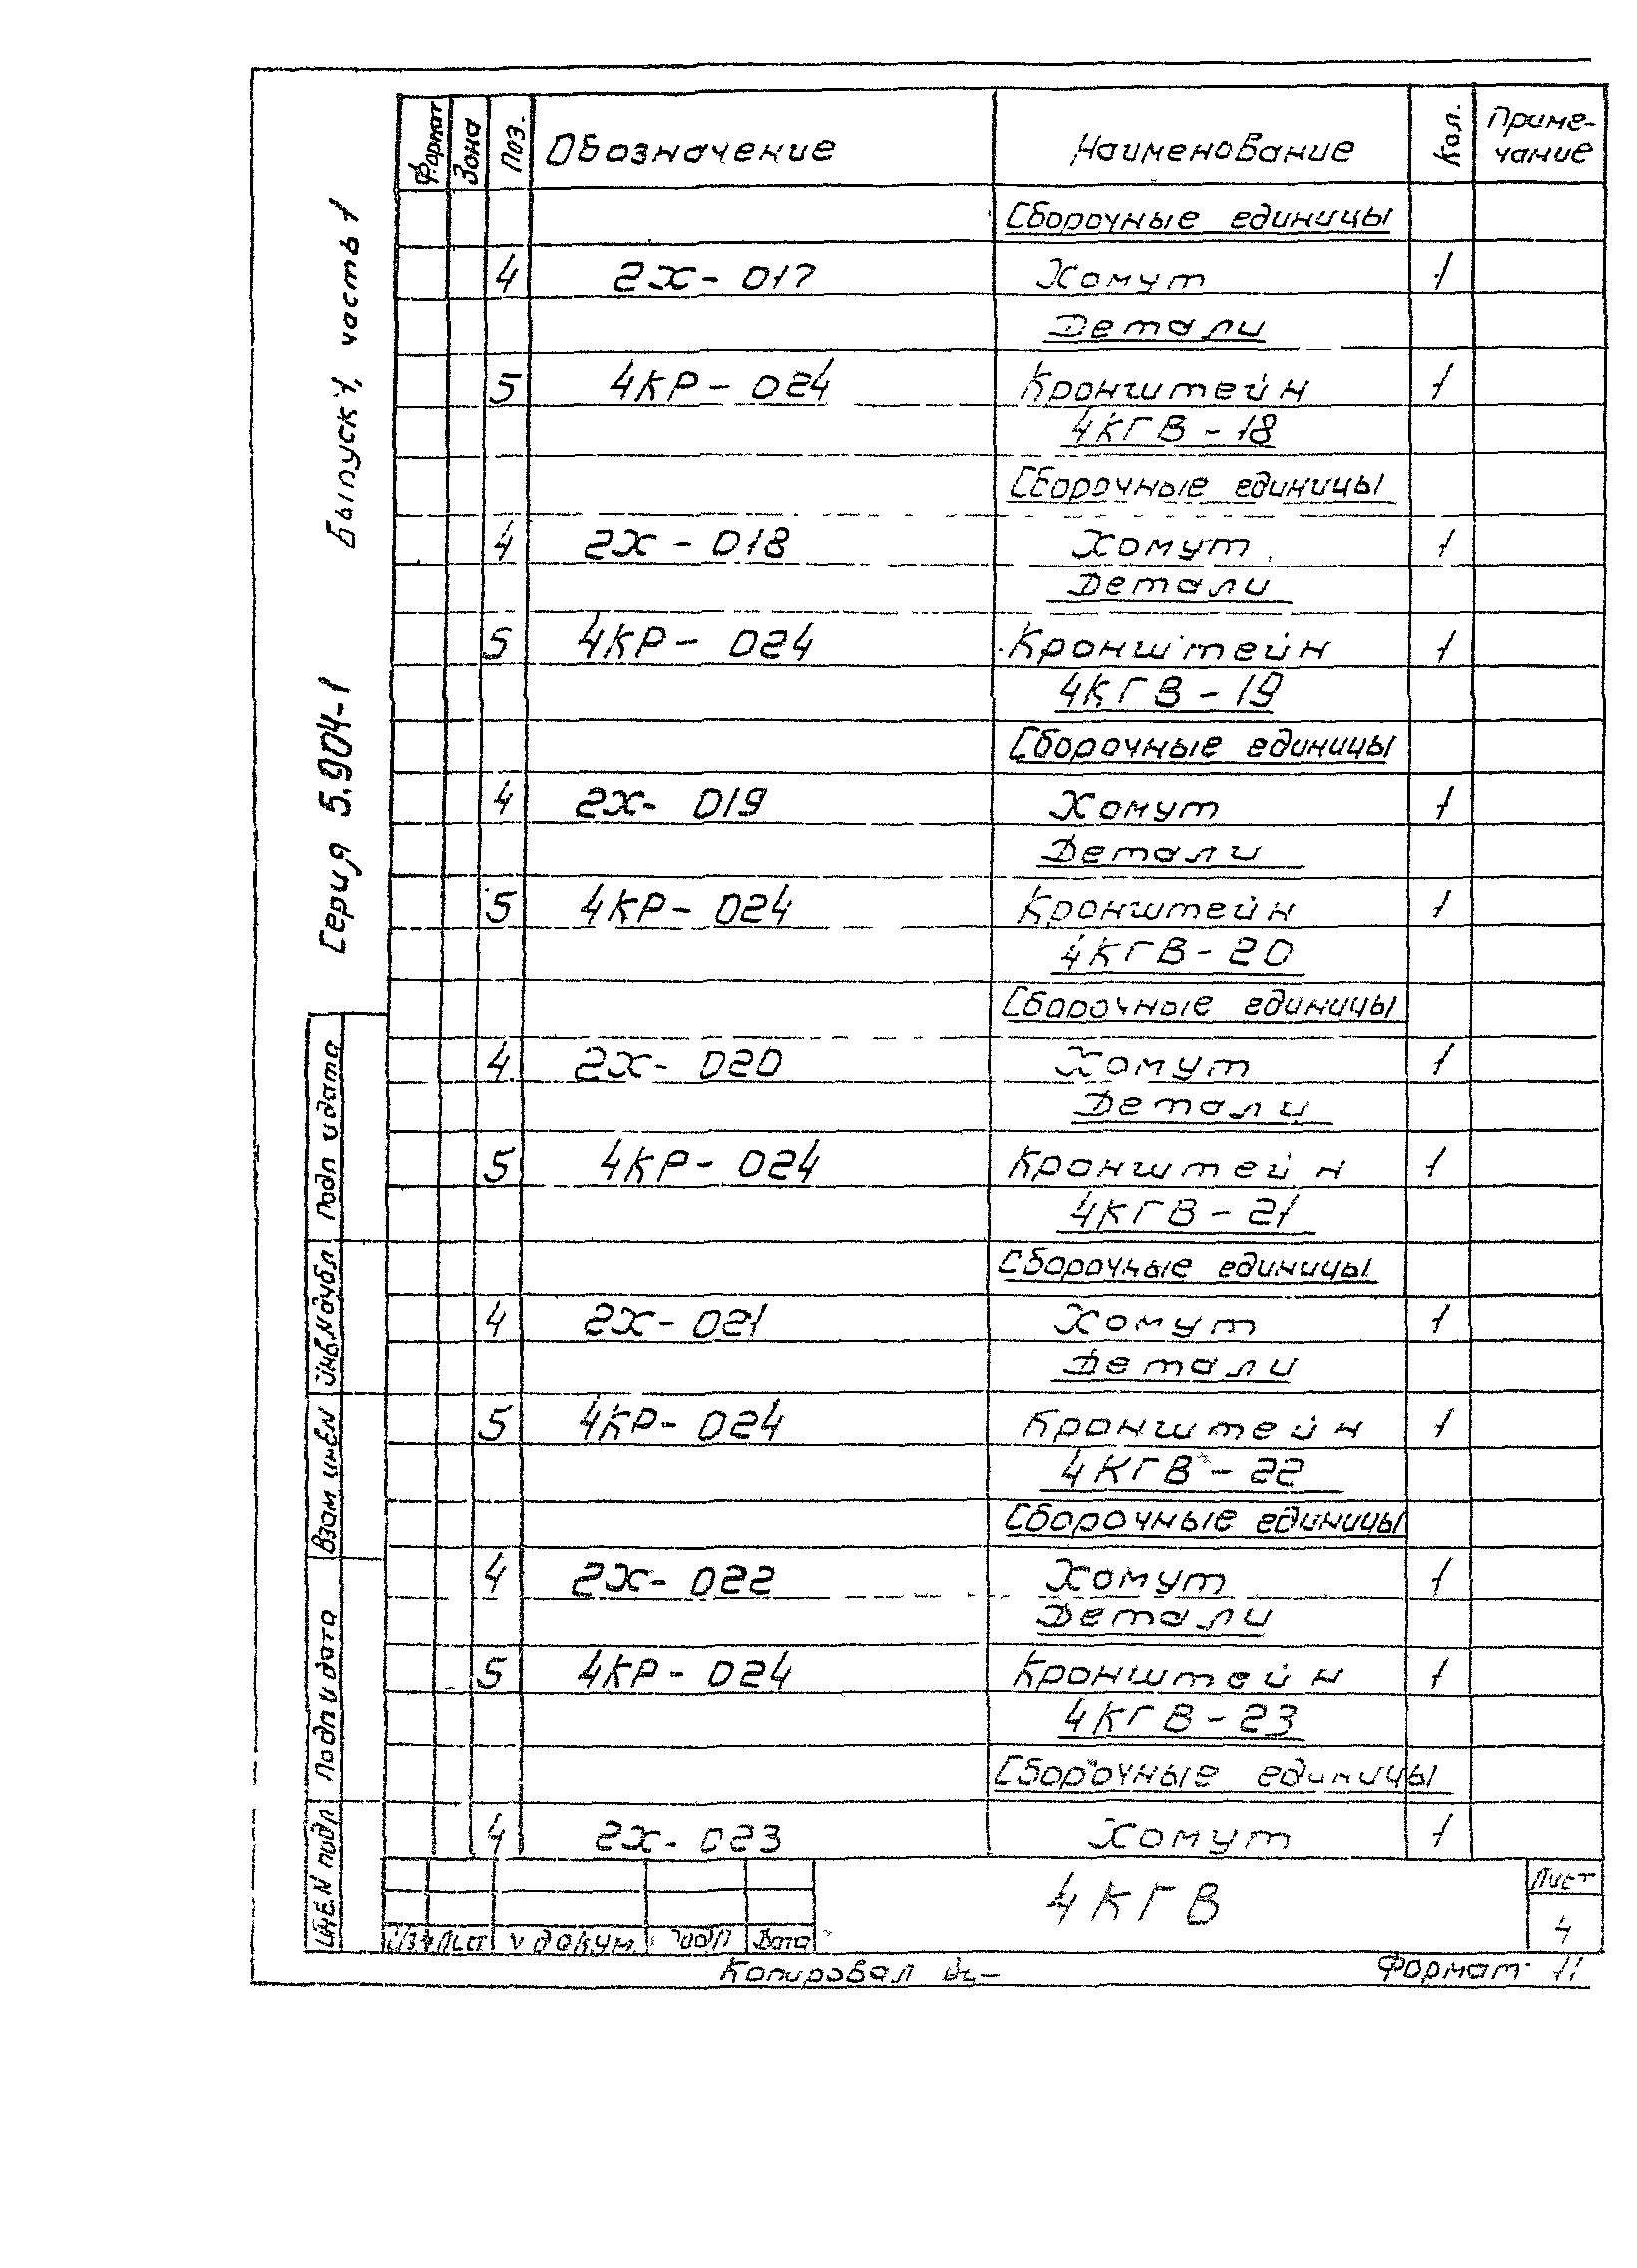 Формат Зона Поз. Обозначение Наименование Кол. Приме-
чание
Сборочные единицы
4 2Х - 017 Хомут 1
Детали
5 4КР - 024 Кронштейн 1
4КГВ - 18
Сборочные единицы
4 2Х - 018 Хомут 1
Детали
5 4КР - 024 Кронштейн 1
4КГВ - 19
Сборочные единицы
4 2Х - 019 Хомут 1
Детали
5 4КР - 024 Кронштейн 1
4КГВ - 20
Сборочные единицы
4 2Х - 020 Хомут 1
Детали
5 4КР - 024 Кронштейн 1
4КГВ - 21
Сборочные единицы
4 2Х - 021 Хомут 1
Детали
5 4КР - 024 Кронштейн 1
4КГВ - 22
Сборочные единицы
4 2Х - 022 Хомут 1
Детали
5 4КР - 024 Кронштейн 1
4КГВ - 23
Сборочные единицы
4 2Х - 023 Хомут 1
4КГВ
Лист
4
Лист докум. Дата
Копировал
Формат 11
Серия 5.904-1 Выпуск часть 1
Подп и дата
Подп и дата
подл